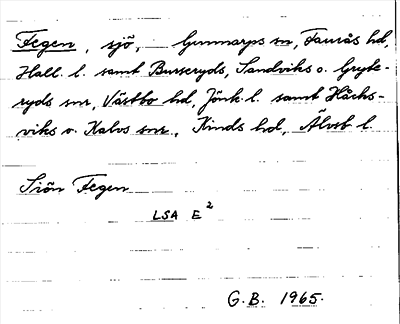 Fegen, sjö, Gunnarps sn, Faurås hd,
Hall. l. samt Burseryds, Sandviks o. Gryte-
ryds snr, Västbo hd, Jönk. l. samt Håcks-
viks o. Kalvs snr., Kinds hd, Älvsb l.
Sjön Fegen
LSA E²
G.B. 1965.